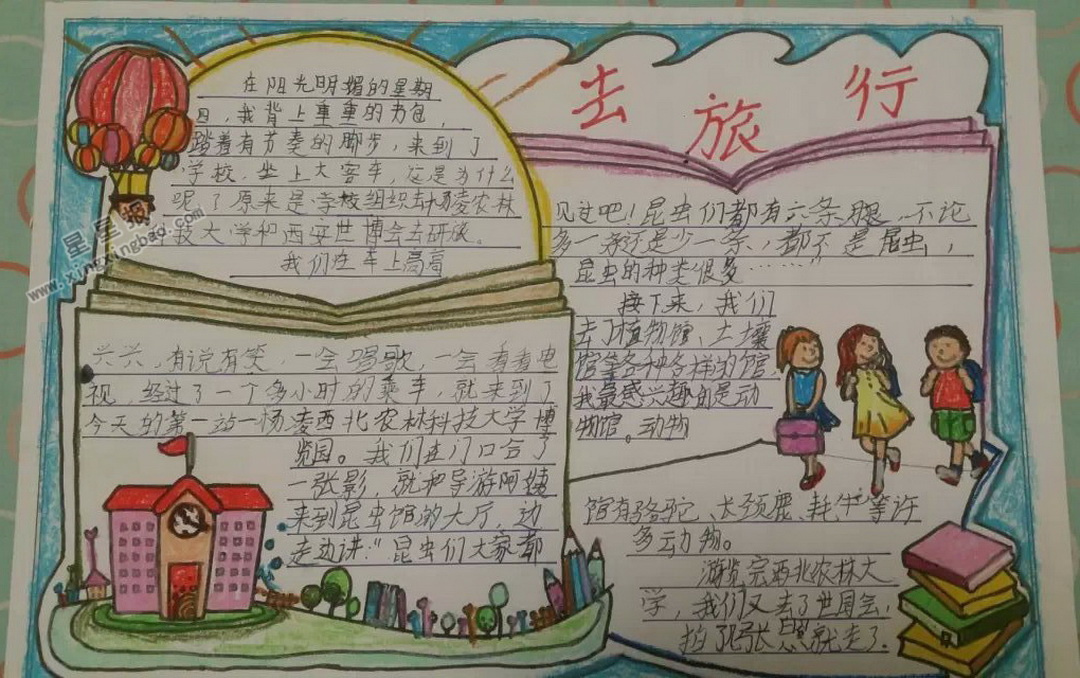 去旅行
在阳光明媚的星期
日，我背上重重的书包，
踏着有节奏的脚步，来到了
学校，坐上大客车，这是为什么
呢？原来是学校组织去杨凌农林
技大学和西安世博会去研旅。
我们在车上高高
兴兴，有说有笑，一会唱歌，一会看看电
视，经过了一个多小时的乘车，就来到了
今天的第一站一杨凌西北农林科技大学博
览园。我们在门口合了
一张影，就和导游阿姨
来到昆虫馆的大厅，边
走边讲："昆虫们大家都
见过吧！昆虫们都有六条腿，不论
多一条还是少一条，都不是昆虫，
昆虫的种类很多……"
接下来，我们
去了植物馆、土壤
馆等各种各样的馆
我最感兴趣的是动
物馆。动物
馆有骆驼、长颈鹿、牦牛等许
多动物。
游览完西北农林大
学，我们又去了世园会，
拍了张照就走了.
星星报
www.xingxingbao.com